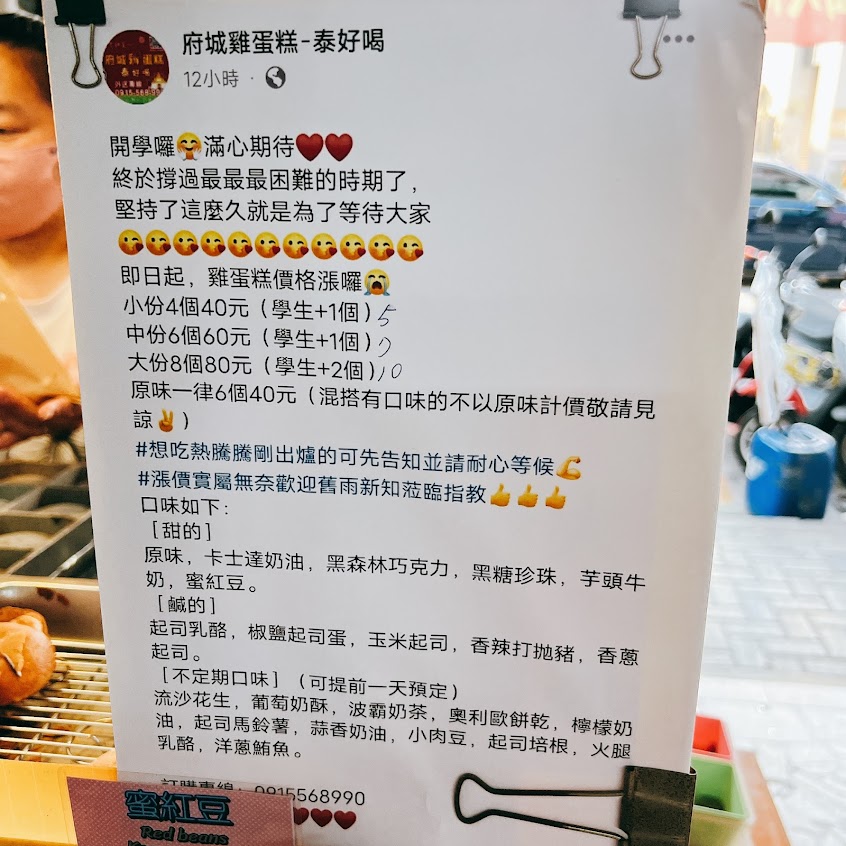 府城雞蛋糕-泰好喝
12小時 ·
府城雞蛋糕
泰好喝
開學囉🤗滿心期待❤️❤️
終於撐過最最最困難的時期了，
堅持了這麼久就是為了等待大家
😘😘😘😘😘😘😘😘😘😘😘
即日起，雞蛋糕價格漲囉😭
小份4個40元（學生+1個）5
中份6個60元（學生+1個）7
大份8個80元（學生+2個）10
原味一律6個40元（混搭有口味的不以原味計價敬請見
諒✌️）
#想吃熱騰騰剛出爐的可先告知並請耐心等候💪
#漲價實屬無奈歡迎舊雨新知蒞臨指教👍👍👍
口味如下：
［甜的］
原味，卡士達奶油，黑森林巧克力，黑糖珍珠，芋頭牛
奶，蜜紅豆。
［鹹的］
起司乳酪，椒鹽起司蛋，玉米起司，香辣打拋豬，香蔥
起司。
［不定期口味］（可提前一天預定）
流沙花生，葡萄奶酥，波霸奶茶，奧利歐餅乾，檸檬奶
油，起司馬鈴薯，蒜香奶油，小肉豆，起司培根，火腿
乳酪，洋蔥鮪魚。
訂購專線：0915568990
❤️❤️❤️
蜜紅豆
Red beans